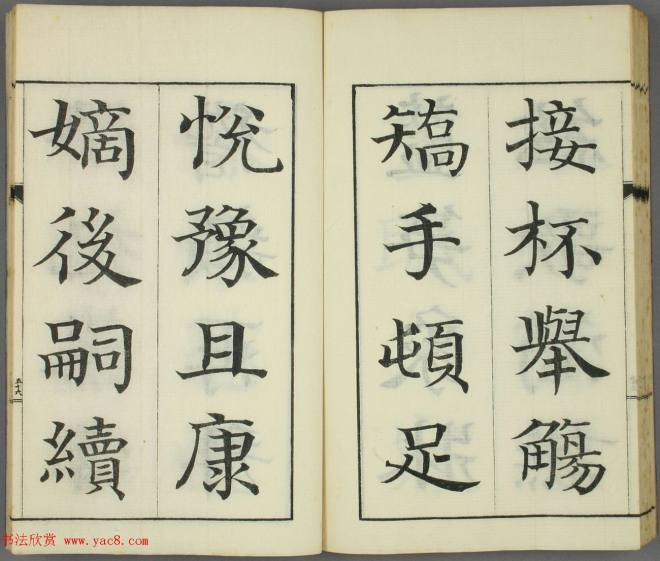 接杯舉觴
矯手頓足
悅豫且康
嫡後嗣續
五十六
书法欣赏 www.yac8.com